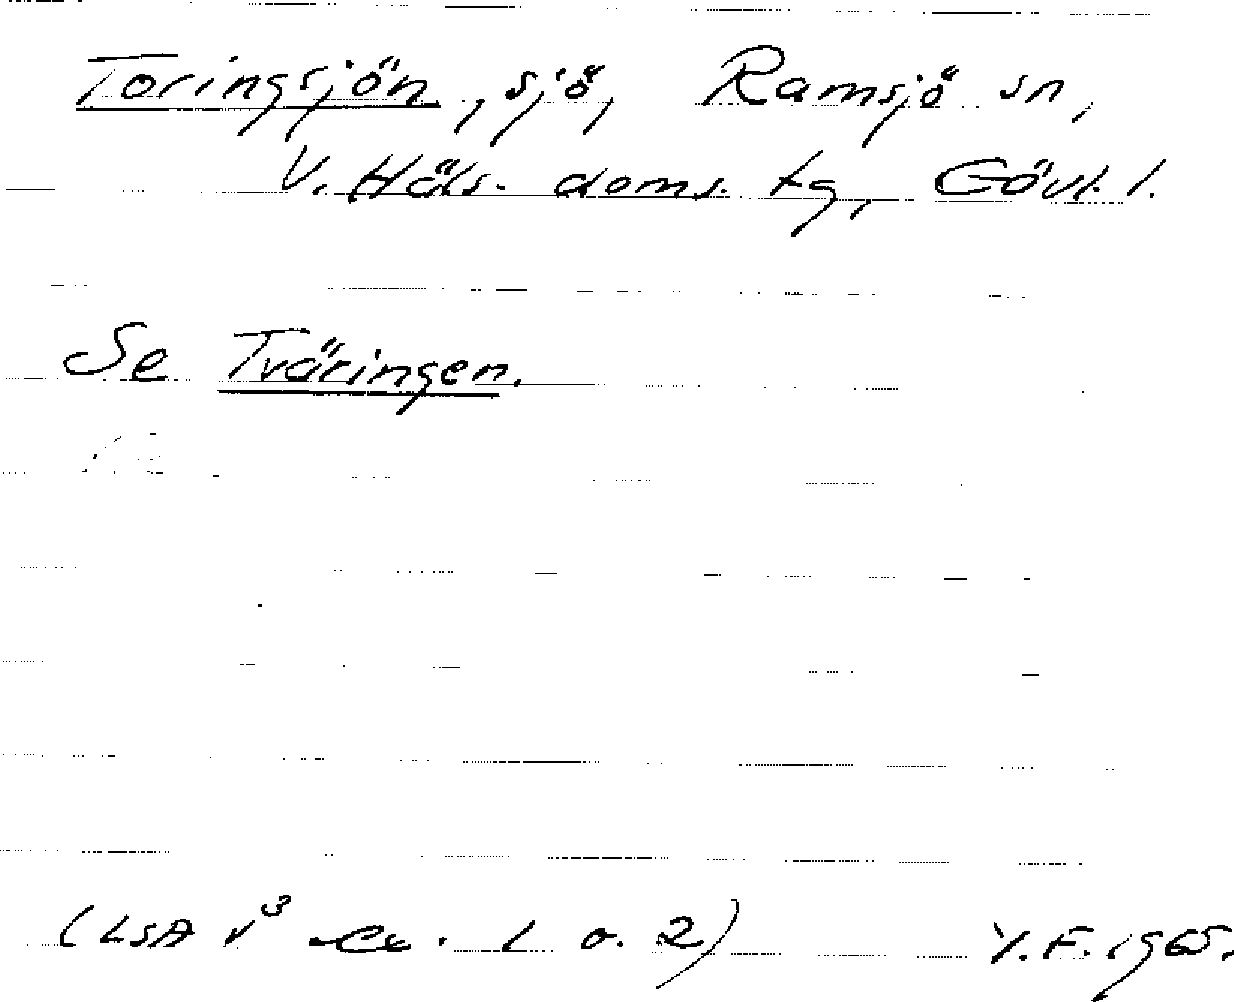 Toringsjön, sjö, Ramsjö sn,
V. Häls. doms. tg, Gävl. l.
Se Tväringen.
(LSA v³ ex. 1 o. 2) Y.F. 1965.